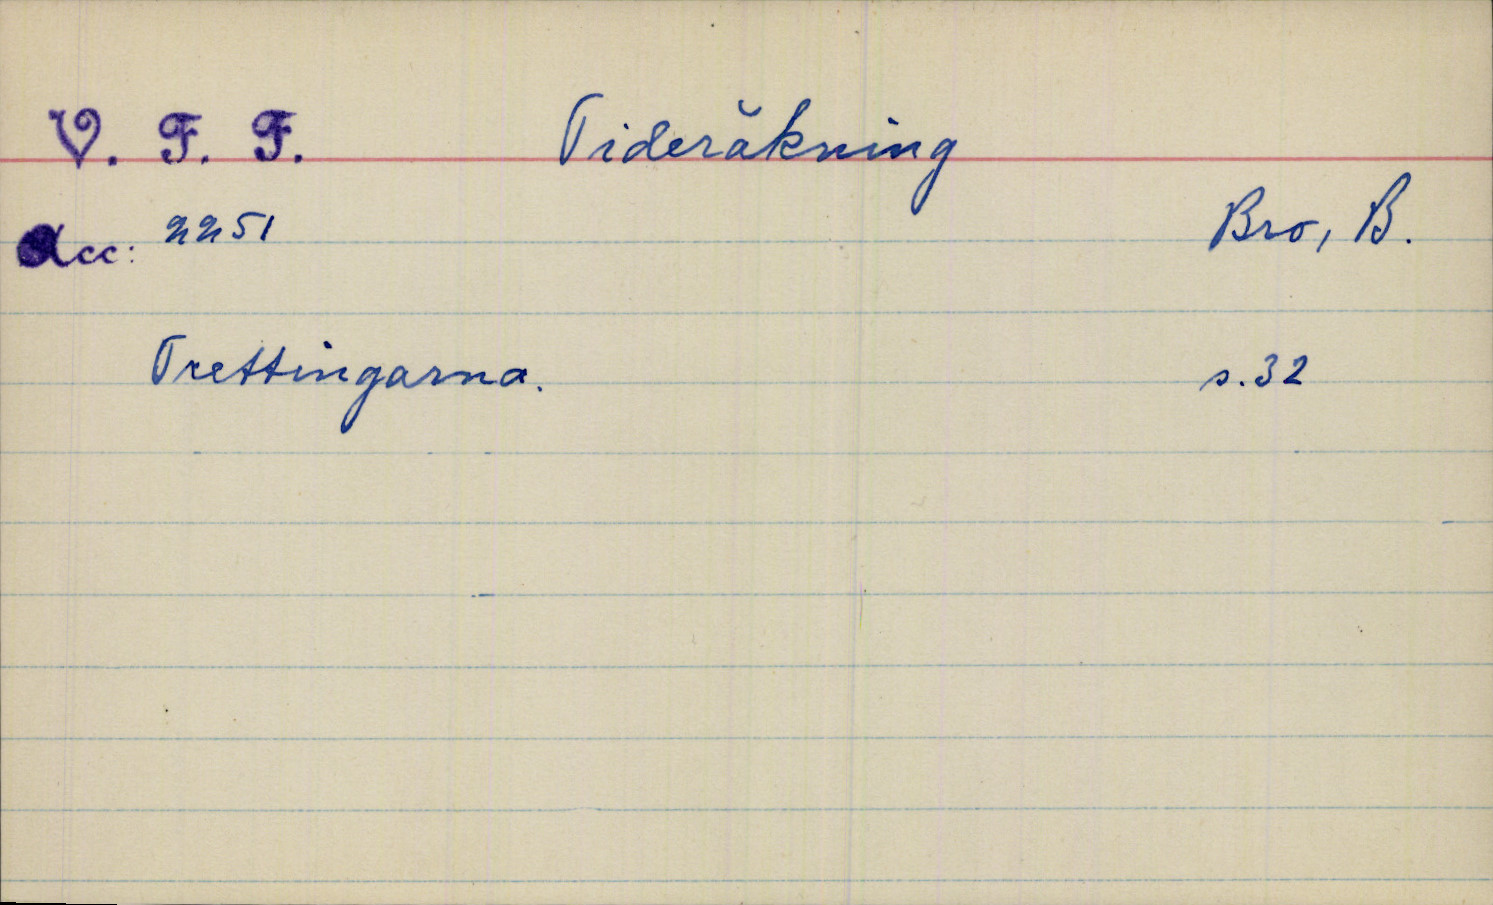 V. F. F. Tideräkning
Acc: 2251 Bro, B.
Trettingarna. s. 32